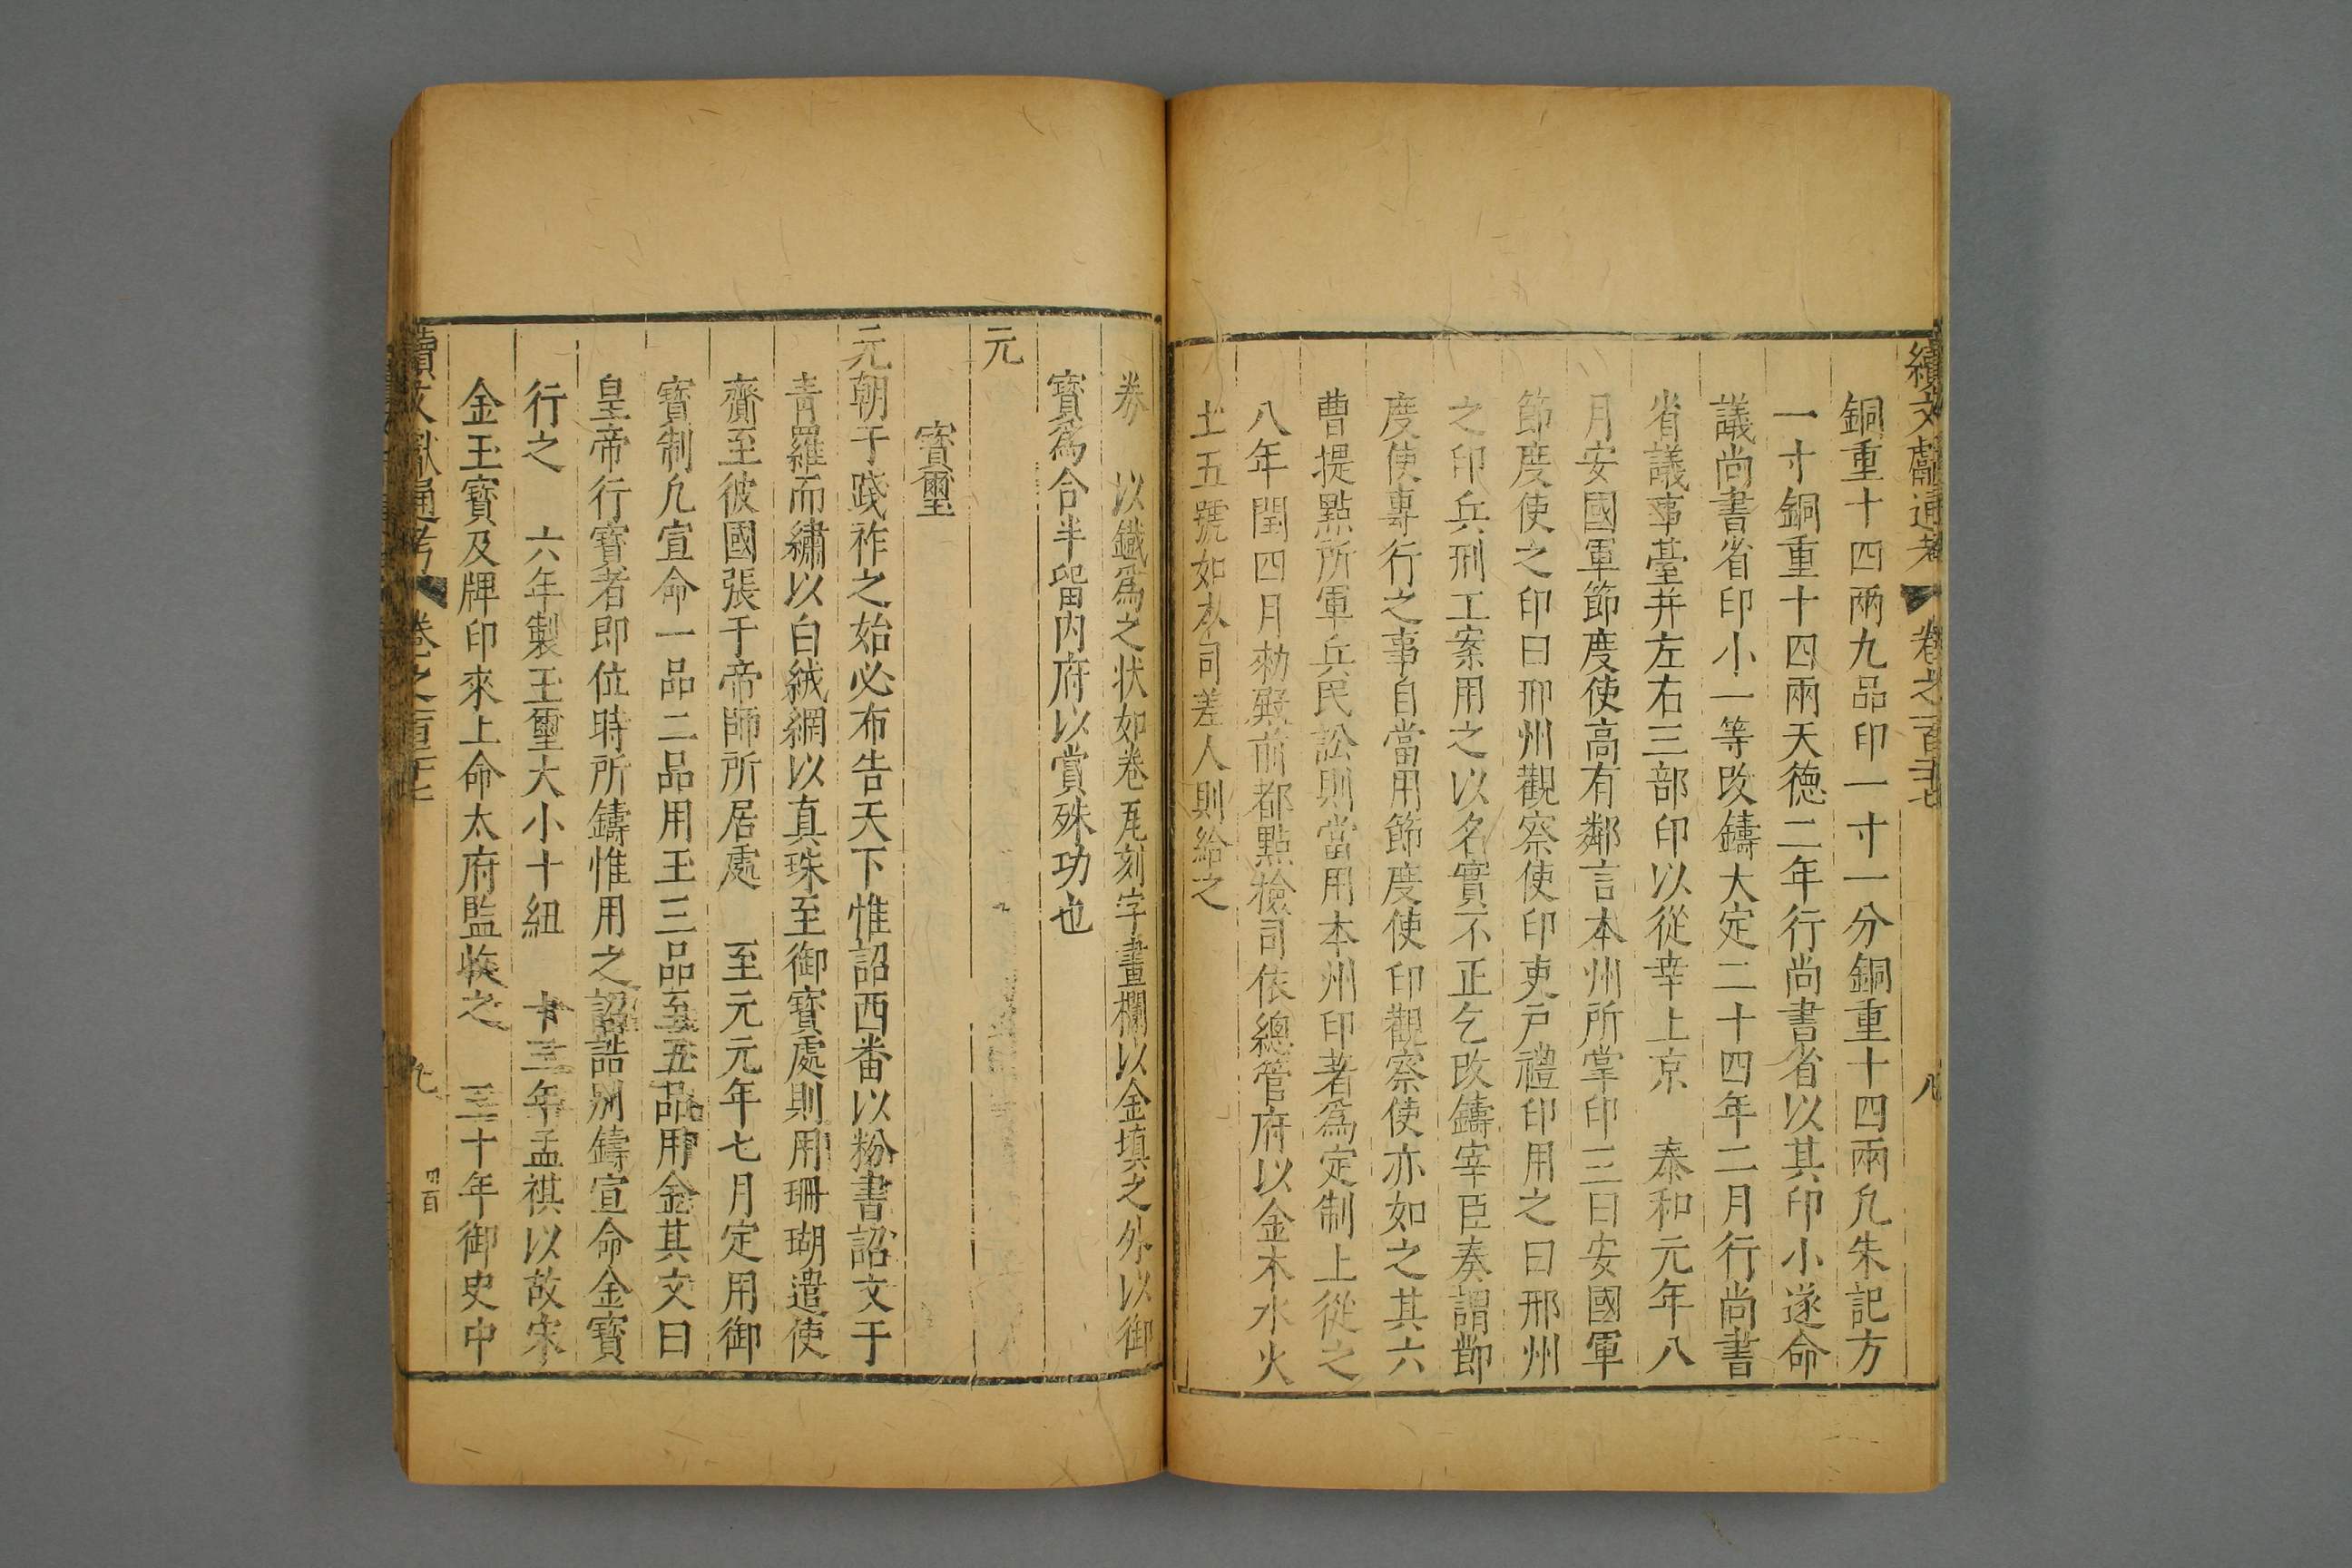 續文獻通考 卷之一百三十七 八
銅重十四兩九品印一寸一分銅重十四兩凢朱記方
一寸銅重十四兩天德二年行尚書省以其印小遂命
議尚書省印小一等改鑄大定二十四年二月行尚書
省議事臺并左右三部印以從幸上京 泰和元年八
月安國軍節度使高有鄰言本州所掌印三曰安國軍
節度使之印曰邢州觀察使印吏戸禮印用之曰邢州
之印兵刑工案用之以名實不正乞改鑄宰臣奏謂節
度使專行之事自當用節度使印觀察使亦如之其六
曹提點所軍兵民訟則當用本州印著爲定制上從之
八年閏四月勑殿前都點檢司依總管府以金木水火
土五號如本司差人則給之
券 以鐵爲之狀如卷瓦刻字畫欄以金填之外以御
寶爲合半留内府以賞殊功也
元
寳璽
元朝于踐祚之始必布告天下惟詔西番以粉書詔文于
青羅而繡以白絨網以真珠至御寳處則用珊瑚遣使
齎至彼國張于帝師所居處 至元元年七月定用御
寳制凢宣命一品二品用玉三品至五品用金其文曰
皇帝行寳者即位時所鑄惟用之詔誥別鑄宣命金寳
行之 六年製玉璽大小十紐 十三年孟祺以故宋
金玉寳及牌印來上命太府監收之 三十年御史中
續文獻通考 卷之一百三十七 九 四百